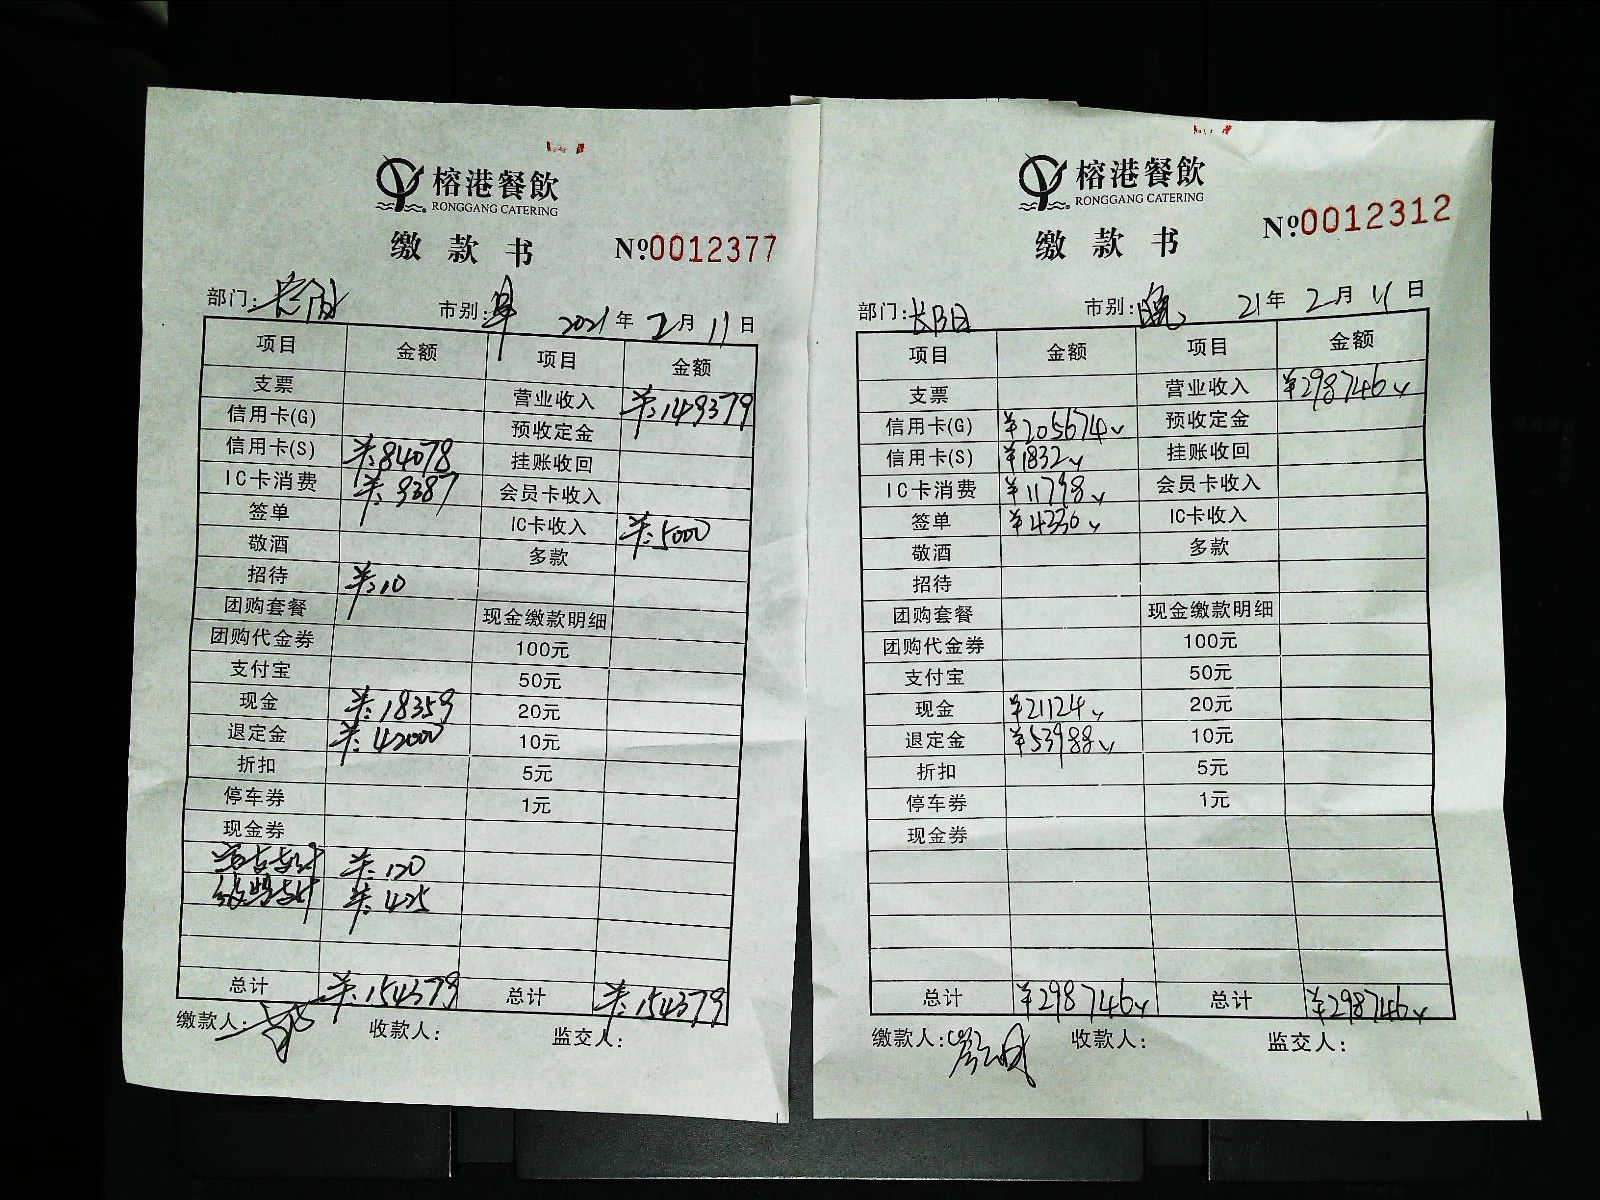 榕港餐飲
RONGGANG CATERING
缴款书 №0012377
部门: 市别:早 2021年2月11日
项目 金额 项目 金额
支票 营业收入 ¥:149379
信用卡(G) 预收定金
信用卡(S) ¥:84078 挂账收回
IC卡消费 ¥:9387 会员卡收入
签单 IC卡收入 ¥:5000
敬酒 多款
招待 ¥:10
团购套餐 现金缴款明细
团购代金券 100元
支付宝 50元
现金 ¥:18359 20元
退定金 ¥:42000 10元
折扣 5元
停车券 1元
现金券
¥:120
¥:425
总计 ¥:154379 总计 ¥:154379
缴款人: 收款人: 监交人:
榕港餐飲
RONGGANG CATERING
缴款书 №0012312
部门:长阳 市别:晚 21年2月11日
项目 金额 项目 金额
支票 营业收入 ¥298746
信用卡(G) ¥205674 预收定金
信用卡(S) ¥1832 挂账收回
IC卡消费 ¥11798 会员卡收入
签单 ¥4330 IC卡收入
敬酒 多款
招待
团购套餐 现金缴款明细
团购代金券 100元
支付宝 50元
现金 ¥21124 20元
退定金 ¥53988 10元
折扣 5元
停车券 1元
现金券
总计 ¥298746 总计 ¥298746
缴款人: 收款人: 监交人: